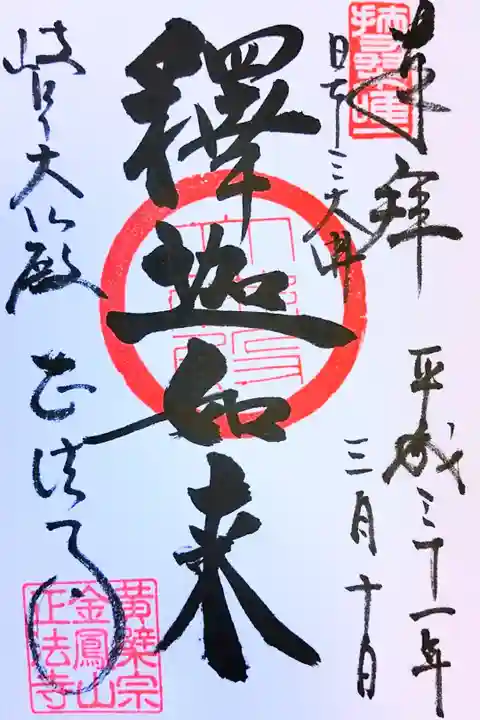 奉拝
日本三大佛
平成三十一年
三月十日
釋迦如来
岐阜大仏殿 正法寺
黄檗宗
金鳳山
正法寺